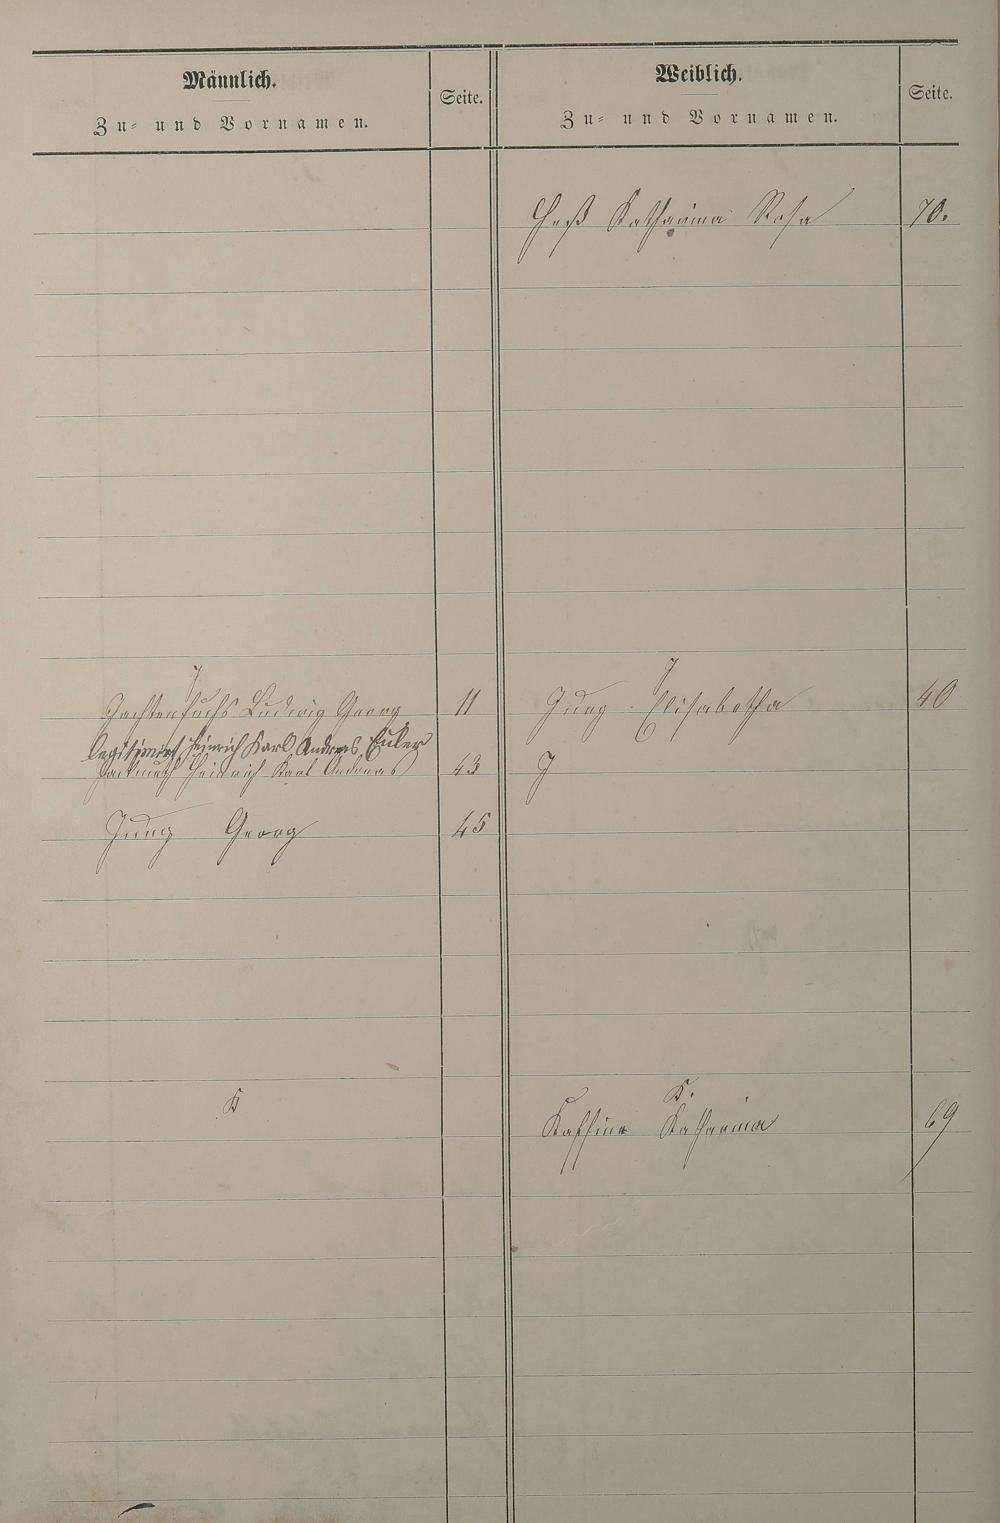 Männlich.
Zu- und Vornamen.
Seite.
Weiblich.
Zu- und Vornamen.
Seite.
Heß Katharina Rosa 70.
J
Jachtenfuchs Ludwig Georg 11
legitimirt Heinrich Karl Andreas Euler
Heinrich Karl Andreas 43
Jung Georg 45
J
Jung Elisabetha 40
J
K
K.
Katharina 69